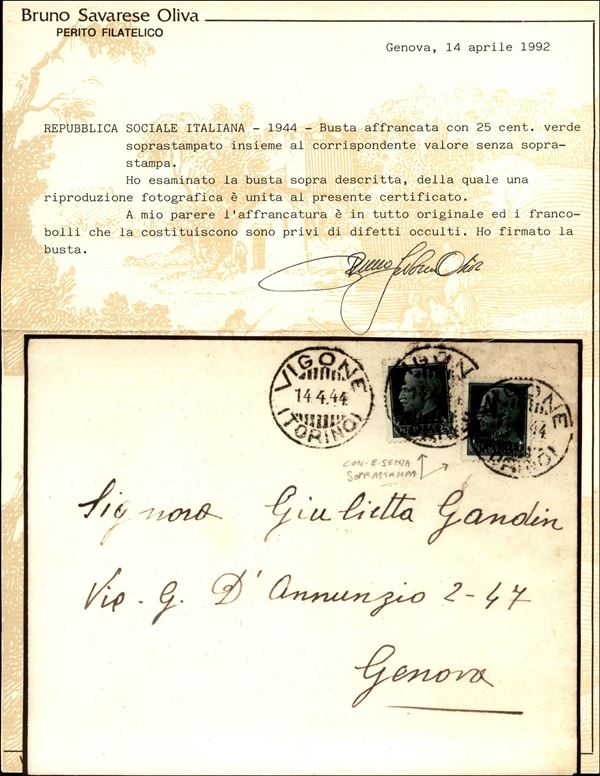 Bruno Savarese Oliva
PERITO FILATELICO
Genova, 14 aprile 1992
REPUBBLICA SOCIALE ITALIANA - 1944 - Busta affrancata con 25 cent. verde
soprastampato insieme al corrispondente valore senza sopra-
stampa.
Ho esaminato la busta sopra descritta, della quale una
riproduzione fotografica è unita al presente certificato.
A mio parere l'affrancatura è in tutto originale ed i franco-
bolli che la costituiscono sono privi di difetti occulti. Ho firmato la
busta.
Bruno Savarese Oliva
VIGONE
14.4.44
(TORINO)
CON-E-SENZA
SOPRASTAMPA
Signora Giulietta Gandin
Via. G. D'Annunzio 2-47
Genova